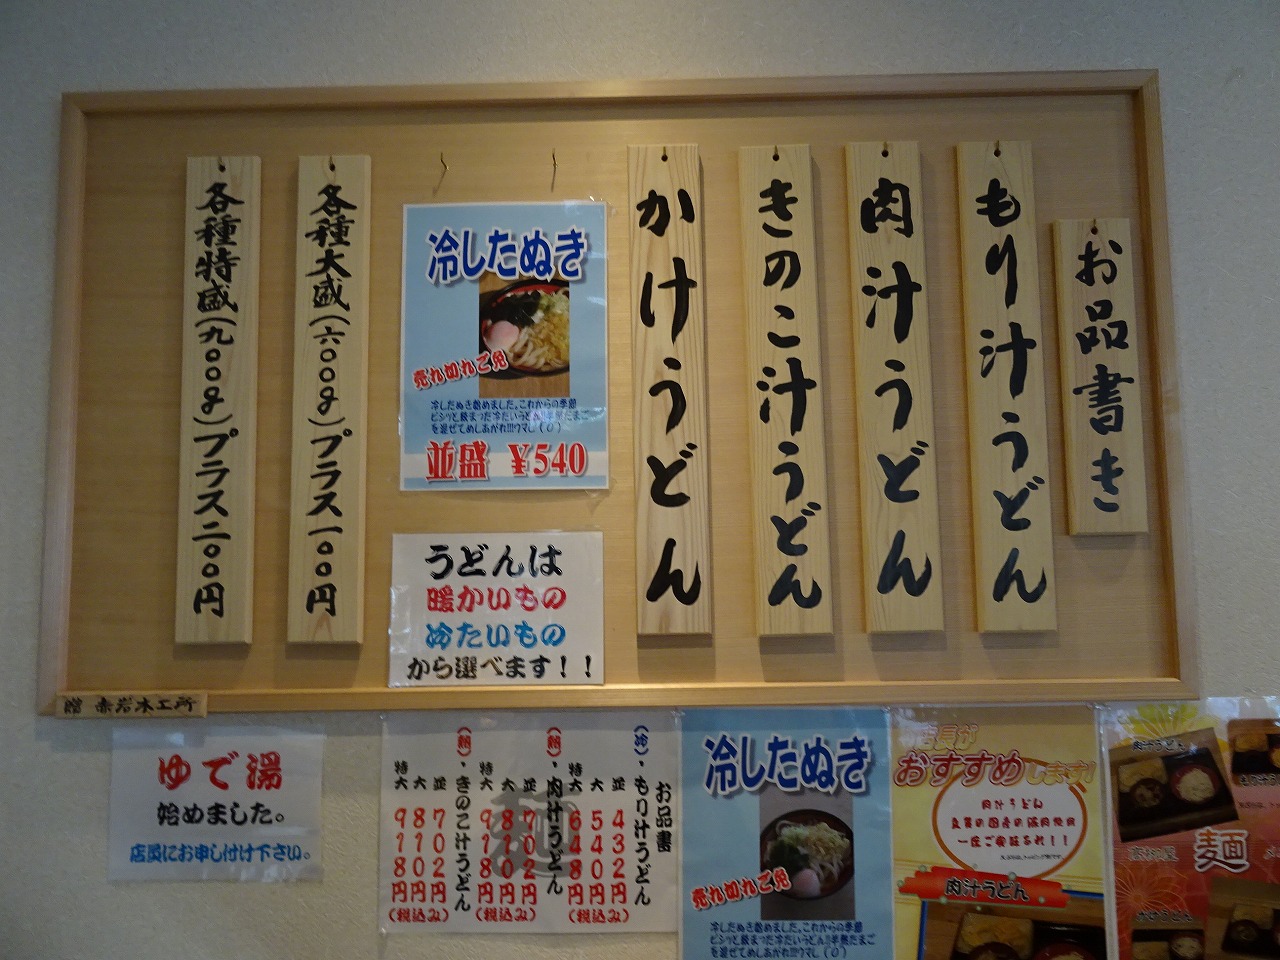 お品書き
もり汁うどん
肉汁うどん
きのこ汁うどん
かけうどん
冷したぬき
売れ切れご免
冷したぬき始めました。これからの季節
ピシッと絞まった冷たいうどん!!半熟たまご
を混ぜてめしあがれ!!!ウマし(O)
並盛 ¥540
うどんは
暖かいもの
冷たいもの
から選べます！！
各種大盛(六〇〇g)プラス一〇〇円
各種特盛(九〇〇g)プラス二〇〇円
贈 赤岩木工所
ゆで湯
始めました。
店員にお申し付け下さい。
お品書
(冷)・もり汁うどん
並 432円
大 540円
特大 648円
(税込み)
(熱)・肉汁うどん
並 702円
大 810円
特大 918円
(税込み)
(熱)・きのこ汁うどん
並 702円
大 810円
特大 918円
(税込み)
麺
冷したぬき
売れ切れご免
冷したぬき始めました。これからの季節
ピシッと絞まった冷たいうどん!!半熟たまご
を混ぜてめしあがれ!!!ウマし(O)
店長が
おすすめします!
肉汁うどん
一度ご賞味あれ！！
肉汁うどん
肉汁うどん
麺